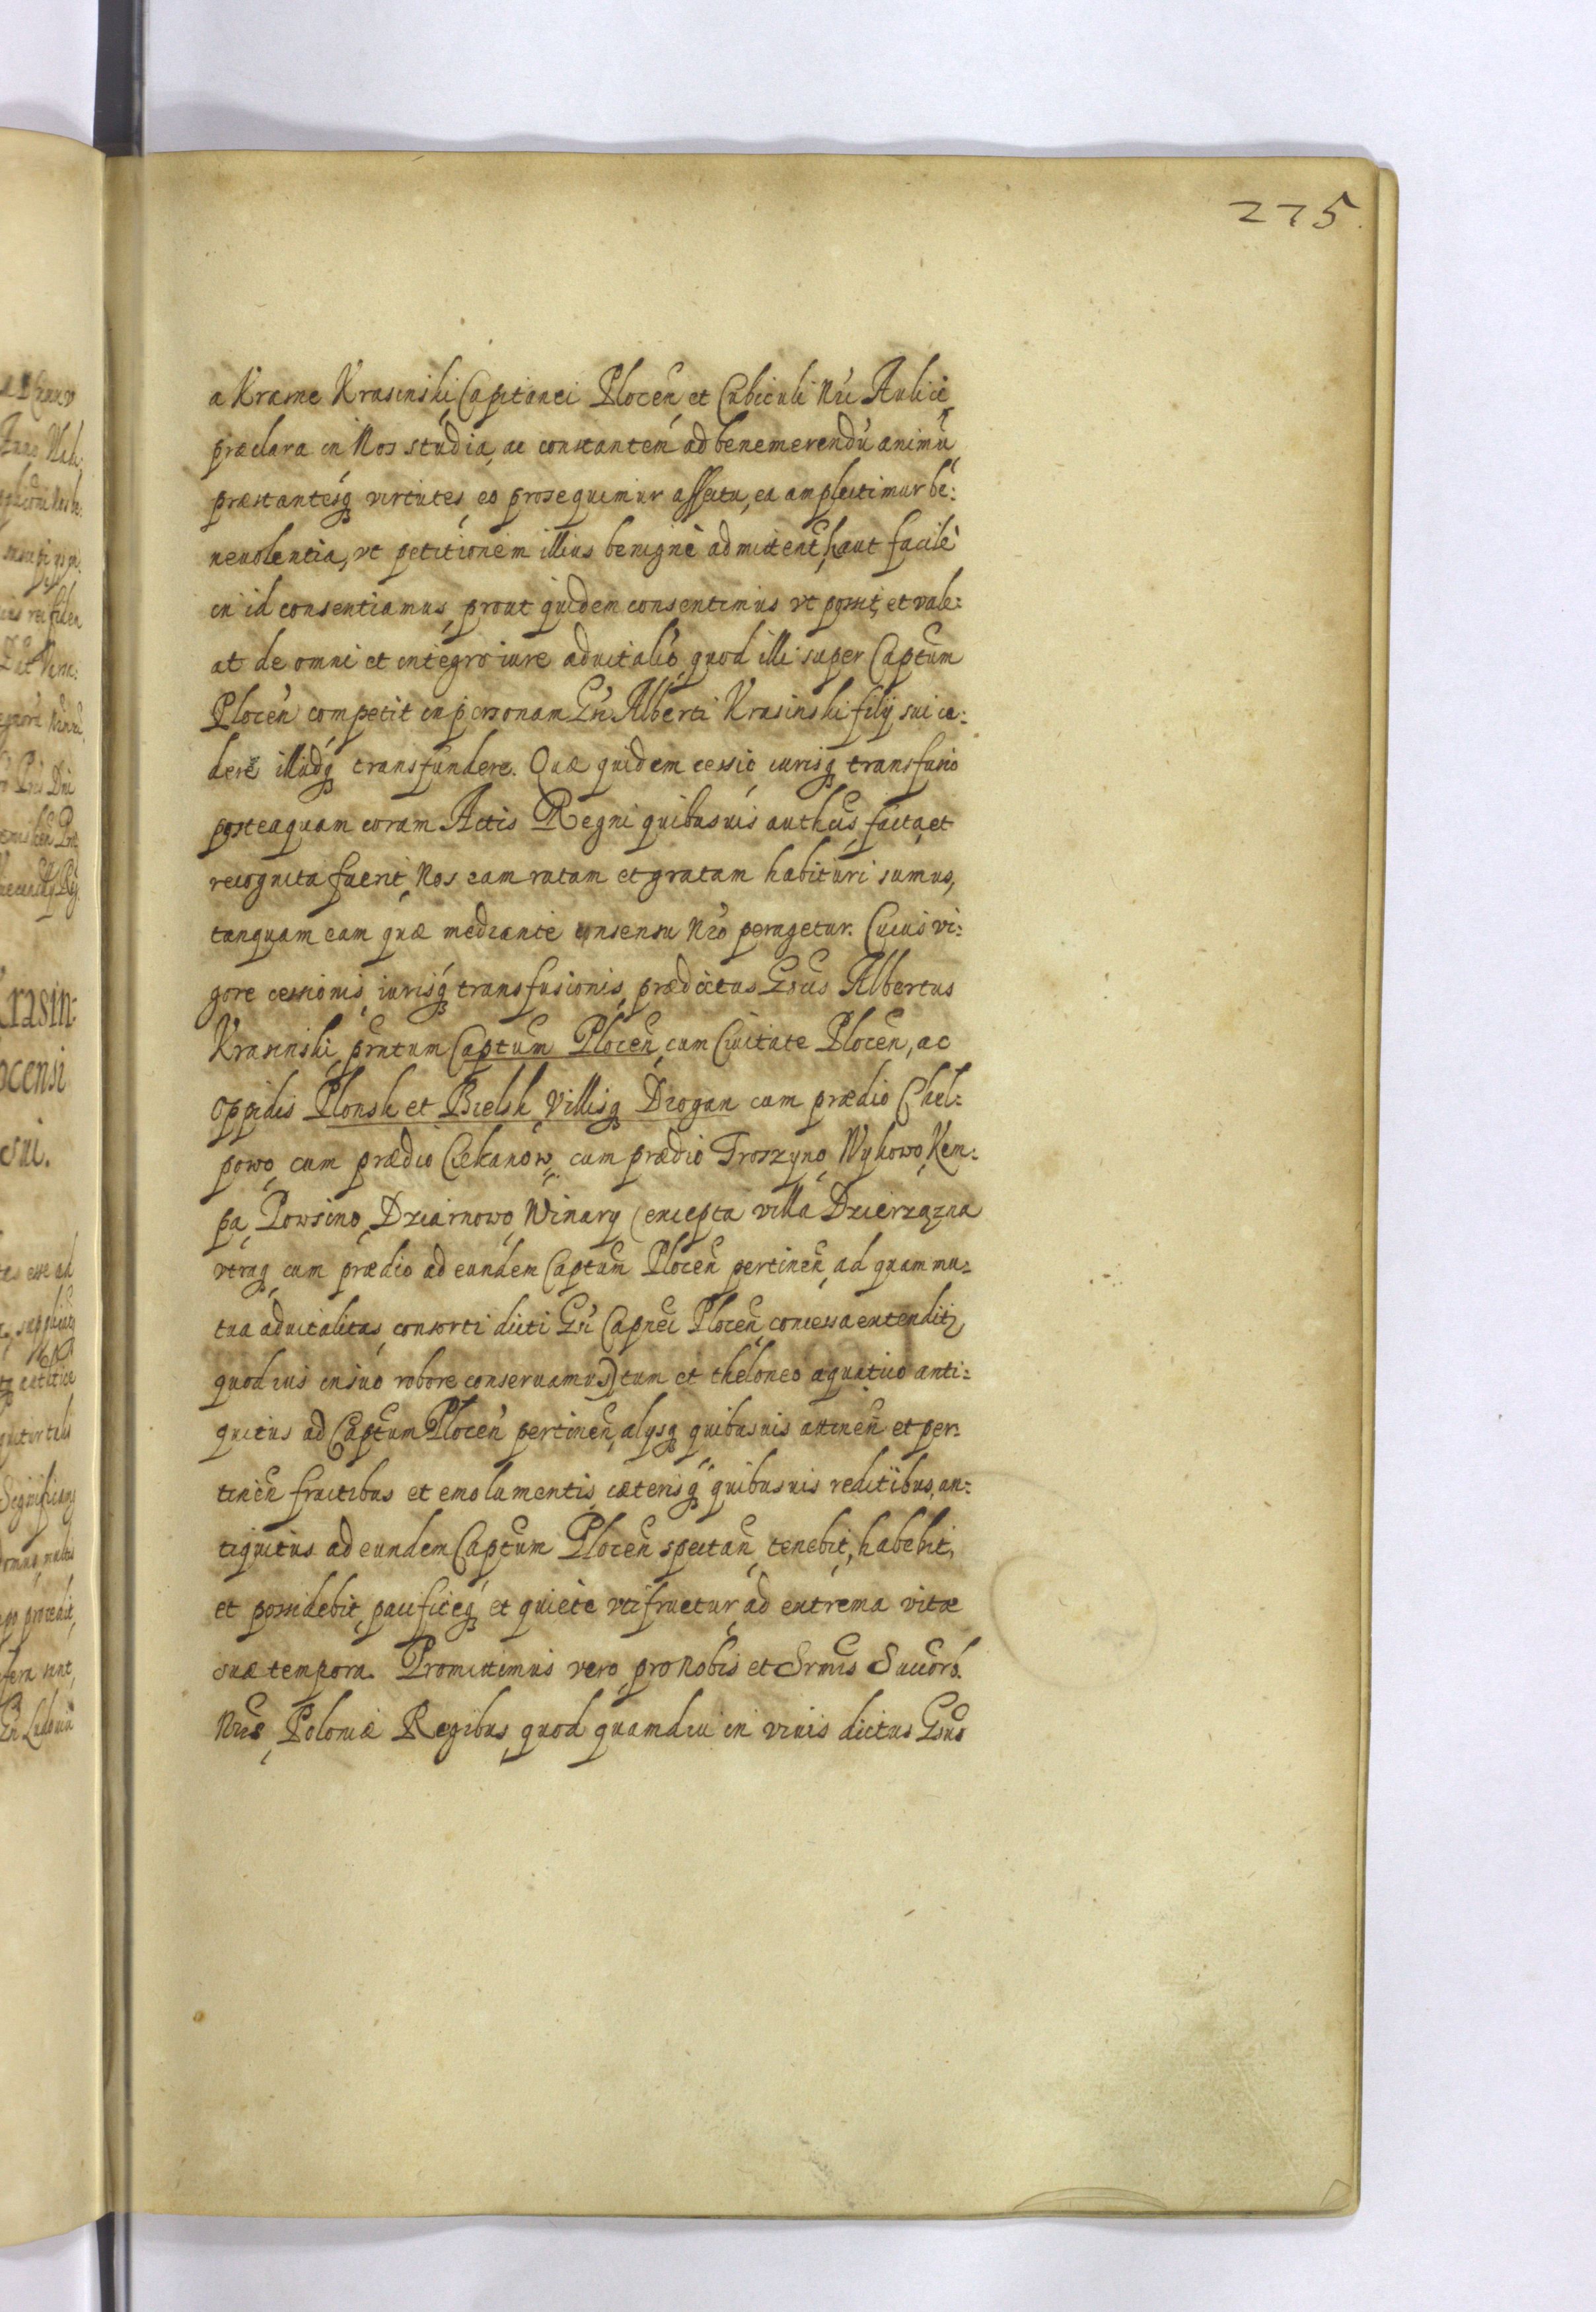 275
a Krasne Krasinski, Capitanei Plocen̄ et Cubiculi Nr̄i Aulici,
præclara in Nos studia, ac constantem ad benemerendū animū,
præstantesq́ virtutes, eo prosequimur affectu, ea amplectimur be:
neuolentia, vt petitionem illius benignè admitten̄t, haut facilè
in id consentiamus, prout quidem consentimus vt possit, et vale:
at de omni et integro iure aduitalio, quod illi super Captūm
Plocen̄ competit in personam Gn̄ Alberti Krasinski filij sui ce:
dere illudq́ transfundere. Quæ quidem cessio iurisq́ transfusio
posteaquam coram Actis Regni quibusuis authc̄is, facta, et
recognita fuerit, Nos eam ratam et gratam habituri sumus,
tanquam eam quæ mediante consensu Nr̄o peragetur. Cuius vi:
gore cessionis, iurisq́ transfusionis, prædictus Gn̄sus Albertus
Krasinski, prn̄tum Captūm Plocen̄, cum Ciuitate Plocen̄, ac
Oppidis Plonsk et Bielsk, Villisq́ Drogan cum prædio Chel:
powo, cum prædio Ciekanow, cum prædio Troszyno, Wykowo, Kem:
pa, Powsino, Dziarnowo, Winary (excepta villa Dzierzązna
vtraq́ cum prædio ad eundem Captūm Plocen̄ pertinen̄, ad quam mu:
tua aduitalitas, consorti dicti Gn̄i Capnēi Plocen̄, concessa extenditr,
quod ius in suo robore conseruamus) tum et theloneo aquatico anti:
quitus ad Captūm Plocen̄ pertinen̄, alijsq́ quibusuis attinen̄ et per:
tinen̄ fructibus et emolumentis, cæterisq́ quibusuis reditibus, an:
tiquitus ad eundem Captūm Plocen̄ spectan̄, tenebit, habebit,
et possidebit, pacificeq́ et quiete vtifruetur, ad extrema vitæ
suæ tempora. Promittimus vero, pro Nobis et Srmīs Succorb.
Nrīs, Poloniæ Regibus, quod quamdiu in viuis dictus Gn̄sus